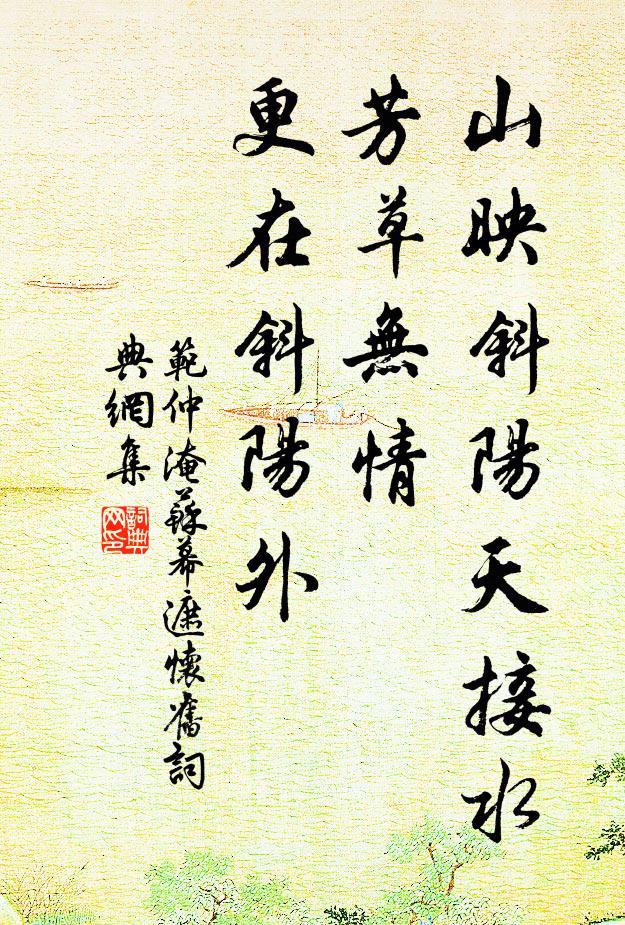 山映斜陽天接水
芳草無情
更在斜陽外
範仲淹蘇幕遮懷舊詞
典網集
詞典网印